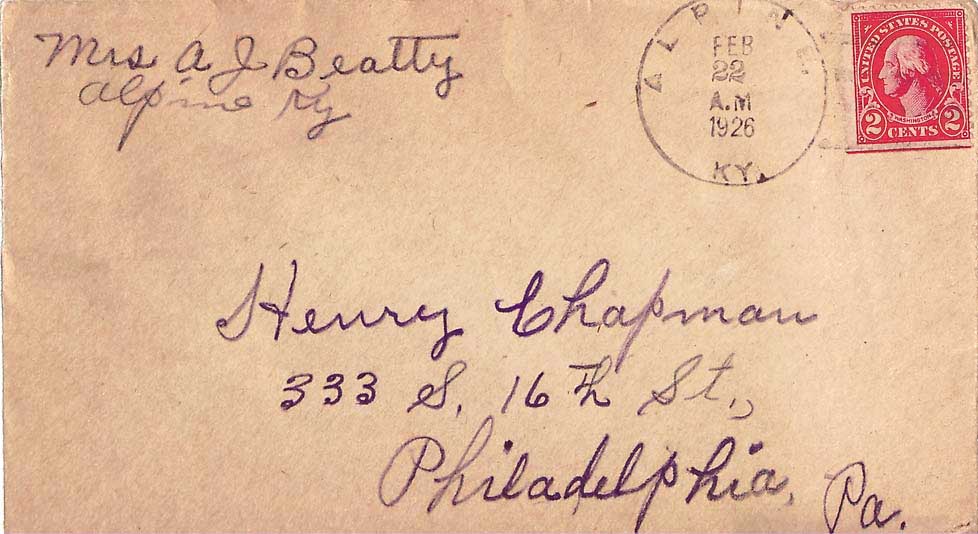 Mrs A J Beatty
Alpine Ky
ALPINE
FEB
22
A.M
1926
KY.
UNITED STATES POSTAGE
WASHINGTON
2 CENTS 2
Henry Chapman
333 S. 16th St.,
Philadelphia, Pa.